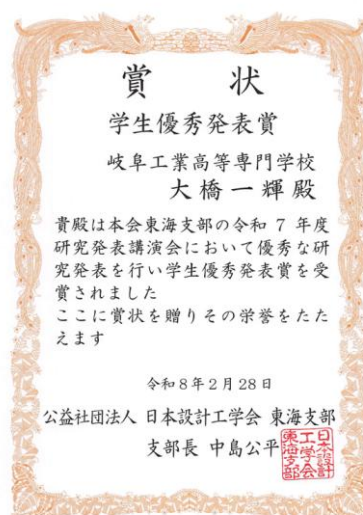 賞 状
学生優秀発表賞
岐阜工業高等専門学校
大橋一輝殿
貴殿は本会東海支部の令和 7 年度
研究発表講演会において優秀な研
究発表を行い学生優秀発表賞を受
賞されました
ここに賞状を贈りその栄誉をたた
えます
令和8年2月28日
公益社団法人 日本設計工学会 東海支部
支部長 中島公平
日本設計
工学会
東海支部